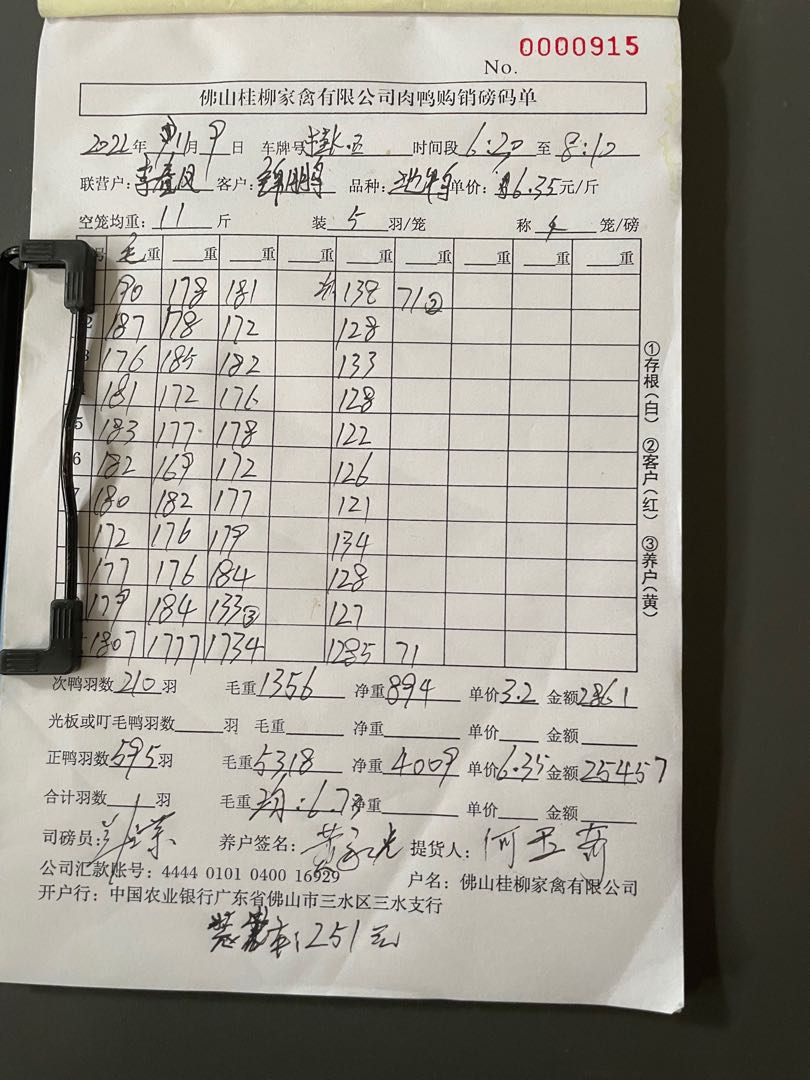 0000915
No.
佛山桂柳家禽有限公司肉鸭购销磅码单
2022年 11月9日 车牌号 时间段 6:20 至 8:10
联营户: 客户: 品种: 单价: 6.35元/斤
空笼均重: 11 斤 装 5 羽/笼 称 4 笼/磅
号 毛重 重 重 重 重 重 重 重 重
190 178 181 次 138 71②
2 187 178 172 128
3 176 185 182 133
181 172 176 128
5 183 177 178 122
6 182 169 172 126
180 182 177 121
172 176 179 134
177 176 184 128
179 184 133③ 127
1807 1777 1734 1285 71
次鸭羽数 210 羽 毛重 1356 净重 894 单价 3.2 金额 2861
光板或叮毛鸭羽数 羽 毛重 净重 单价 金额
正鸭羽数 595 羽 毛重 5318 净重 4009 单价 6.35 金额 25457
合计羽数 羽 毛重 均:6.73 净重 单价 金额
司磅员: 养户签名: 提货人: 何
公司汇款账号: 4444 0101 0400 16929 户名: 佛山桂柳家禽有限公司
开户行: 中国农业银行广东省佛山市三水区三水支行
251元
①存根(白) ②客户(红) ③养户(黄)